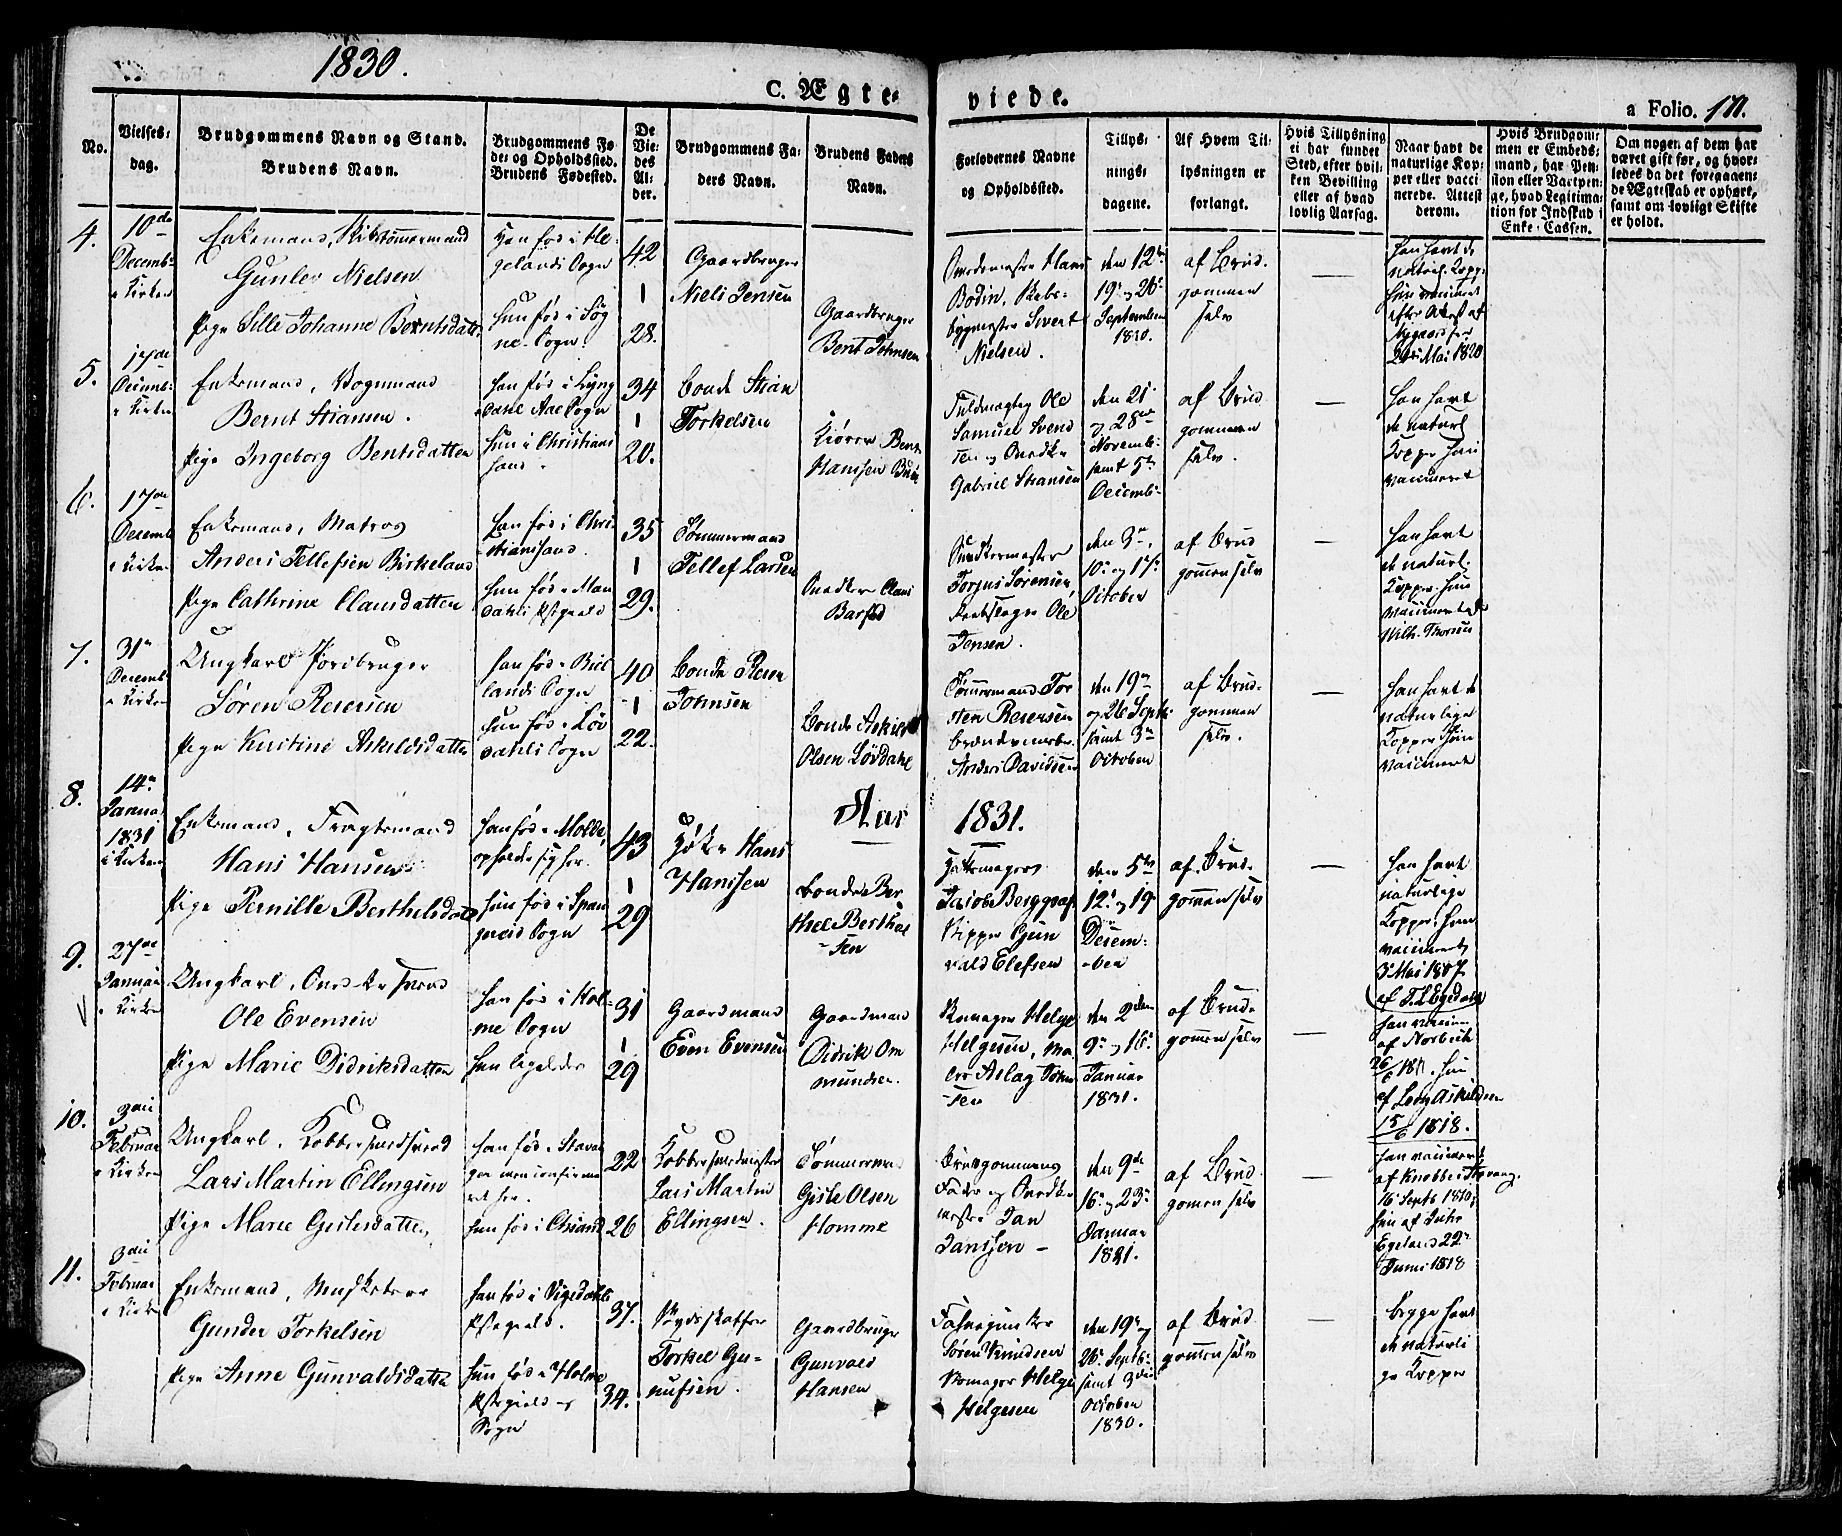 1830.
C. Ægte-
viede.
a Folio. 171.
No.
Vielses-
dag.
Brudgommens Navn og Stand.
Brudens Navn.
Brudgommens Fø-
de- og Opholdssted.
Brudens Fødested.
De
Vie-
des
Al-
der.
Brudgommens Fa-
ders Navn.
Brudens Faders
Navn.
Forlovernes Navne
og Opholdssted.
Tillys-
nings-
dagene.
Af Hvem Til-
lysningen er
forlangt.
Hvis Tillysning
ei har fundet
Sted, efter hvil-
ken Bevilling
eller af hvad
lovlig Aarsag.
Naar havt de
naturlige Kop-
per eller vacci-
nerede. Attest
derom.
Hvis Brudgom-
men er Embeds-
mand, har Pen-
sion eller Vartpen-
ge, hvad Legitima-
tion for Indskud i
Enke-Cassen.
Om nogen af dem har
været gift før, og hvor-
ledes da det foregaaen-
de Ægteskab er ophørt,
samt om lovligt Skifte
er holdt.
4.
10de
Decembr
i Kirken
Enkemand, Skibstømmermand
Gunler Nielsen
Pige Sille Johanne Berntsdatter
Han fød i He-
gelands Sogn
Hun fød i Søg
ne Sogn
42
1
28.
Gaardbruger
Niels Jensen
Gaardbruger
Bent Johnsen
Snedkermester Hans
Bodin, Skibs-
bygmester Sivert
Nielsen.
den 12te
19de og 26de
Septembr
1830.
af Brud-
gommen
selv
han havt de
naturl. Kopp.
hun vaccineret
efter Attest af
Nygaard fra
24de Mai 1820
5.
17de
Decemb:
i Kirken
Enkemand, Vognmand
Bernt Stiansen.
Pige Ingeborg Bentsdatter
Han fød i Lyng
dahl Aae Sogn
Hun i Christian
sand.
34
1
20.
Bonde Stian
Torkelsen
Kiører Bent
Hanssen
Fuldmægtig Ole
Samuel Svend
sen og Snedker
Gabriel Stiansen
den 21de
og 28de
Novemb:
samt 5te
Decemb:
af Brud
gommen
selv.
Han havt
de naturl
Kopper hun
vaccineret
6.
17de
Decemb
i Kirken
Enkemand, Matros
Anders Tellefsen Birkeland
Pige Cathrine Clausdatter
Han fød i Chri
stiansand.
Hun fød i Man
dahls Præstegield
35
1
29.
Tømmermand
Tellef Larsen
Snedker Claus
Barsted
Snedkermester
Torjus Sørensen
Ole
Jensen.
den 3de,
10de og 17de
October
af Brud
gommen selv
Han havt
de naturl.
Kopper. Hun
vaccineret
Wilh. Thorsen
7.
31te
Decemb
i Kirken
Ungkarl Jordbruger
Søren Reiersen
Pige Kirstine Askeldsdatter
Han fød i Biel
lands Sogn
Hun fød i Løv
dahls Sogn
40
1
22.
Bonde Reier
Johnsen
Bonde Askild
Olsen Løvdahl
Tømmermand Tor
sten Reiersen
Anders Davidsen
den 19de
og 26 Septb:
samt 3de
October
af Brud-
gommen
selv.
Han havt de
naturlige
Kopper. Hun
vaccineret
Aar
1831.
8.
14de
Januar
1831
i Kirken
Enkemand, Fragtemand
Hans Hansen
Pige Pernille Berthelsdatter
Han fød i Molde,
opholder sig her.
Hun fød i Span
gereids Sogn
43
1
29
Høker Hans
Hanssen
Bonde Ber
thel Berthel
sen
Hattemager
Jacob Berggraf
Skipper Gun
vald Elefsen
den 5te
12te og 19de
Decem-
ber
af Brud-
gommen selv
Han havt
naturlige
Kopper. Hun
vaccineret
3 Mai 1817
af T. L. Egedahl
9.
27de
Januar
i Kirken
Ungkarl, Snedkersvend
Ole Evensen
Pige Marie Didriksdatter
Han fød i Hol-
me Sogn
Hun ligeledes
31
1
29
Gaardmand
Even Evensen
Gaardmand
Didrik Om
mundsen.
Skomager Helge
Helgesen, Ma-
ler Aslag John
sen
den 2den
9de og 16de
Januar
1831.
af Brud-
gommen selv
Han vaccin
af Norbech
Hun
af Askildsen
15/6 1818.
10.
3die
Februar
i Kirken
Ungkarl, Kobbersmedsvend
Lars Martin Ellingsen
Pige Maree Gislesdatter,
Han fød i Stavan
ger men confirme
ret her.
Hun fød i Chrsand
22
26
Kobbersmedmester
Lars Martin
Ellingsen.
Tømmermand
Gisle Olsen
Homme
Brudgommens
Fader og Snedker
mester Jan
Janssen
den 9de
16de og 23de
Januar
1831.
af Brud-
gommen selv
Han vaccineret
af Knobber Stavang.
16 Septb 1810,
Hun af Tuhr
Egeland 22de
Juni 1818
11.
3die
Februar
i Kirken
Enkemand, Musketeer
Gunder Torkelsen
Pige Anne Gunvaldsdatter
Han fød i Vigedahls
Præstegield.
Hun fød i Holme
Præstegield og
Sogn
37.
34.
Torkel Gun-
nufsen.
Gaardbruger
Gunvald
Hansen
Søren Knudsen
Skomager Helge
Helgesen
den 19de og
26de Septb:
samt 3die
October
1830.
af Brud
gommen selv
begge havt
de naturli
ge Kopper